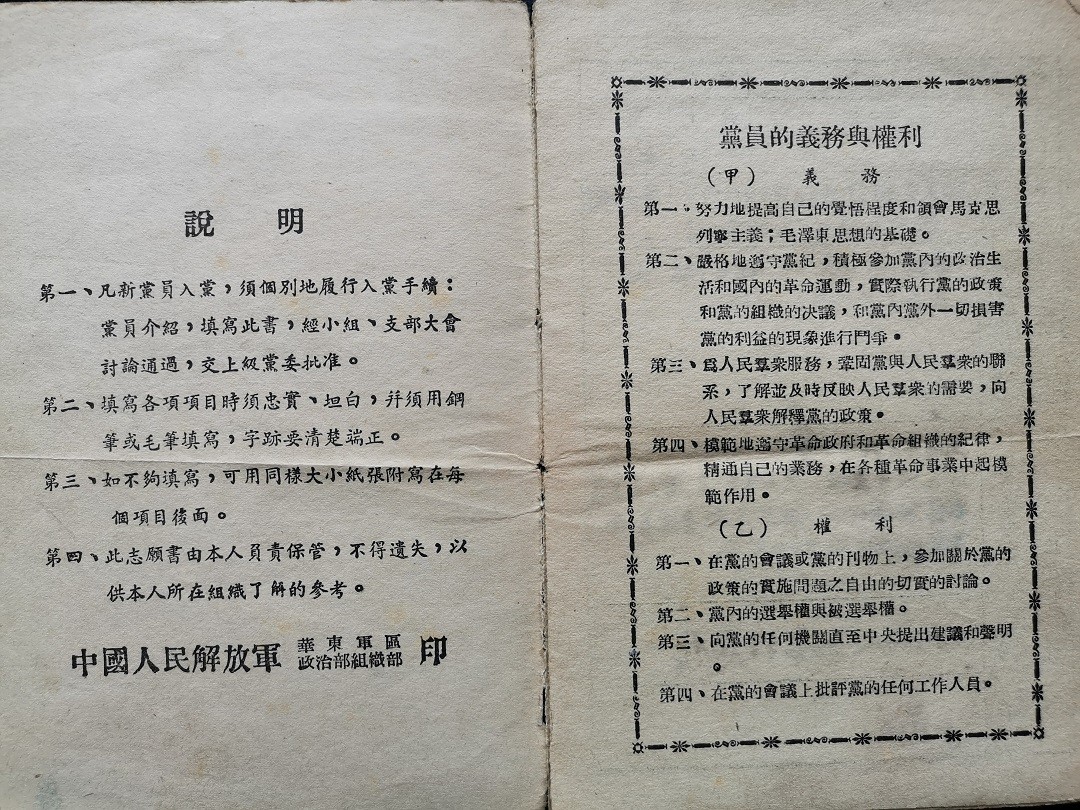 說 明
第一、凡新黨員入黨，須個別地履行入黨手續：
黨員介紹，填寫此書，經小組、支部大會
討論通過，交上級黨委批准。
第二、填寫各項項目時須忠實、坦白，幷須用鋼
筆或毛筆填寫，字跡要清楚端正。
第三、如不夠填寫，可用同樣大小紙張附寫在每
個項目後面。
第四、此志願書由本人員責保管，不得遺失，以
供本人所在組織了解的參考。
中國人民解放軍 華東軍區
政治部組織部 印
黨員的義務與權利
（甲） 義 務
第一、努力地提高自己的覺悟程度和領會馬克思
列寧主義；毛澤東思想的基礎。
第二、嚴格地遵守黨紀，積極參加黨內的政治生
活和國內的革命運動，實際執行黨的政策
和黨的組織的決議，和黨內黨外一切損害
黨的利益的現象進行鬥爭。
第三、爲人民羣衆服務，鞏固黨與人民羣衆的聯
系，了解並及時反映人民羣衆的需要，向
人民羣衆解釋黨的政策。
第四、模範地遵守革命政府和革命組織的紀律，
精通自己的業務，在各種革命事業中起模
範作用。
（乙） 權 利
第一、在黨的會議或黨的刊物上，參加關於黨的
政策的實施問題之自由的切實的討論。
第二、黨內的選舉權與被選舉權。
第三、向黨的任何機關直至中央提出建議和聲明
。
第四、在黨的會議上批評黨的任何工作人員。